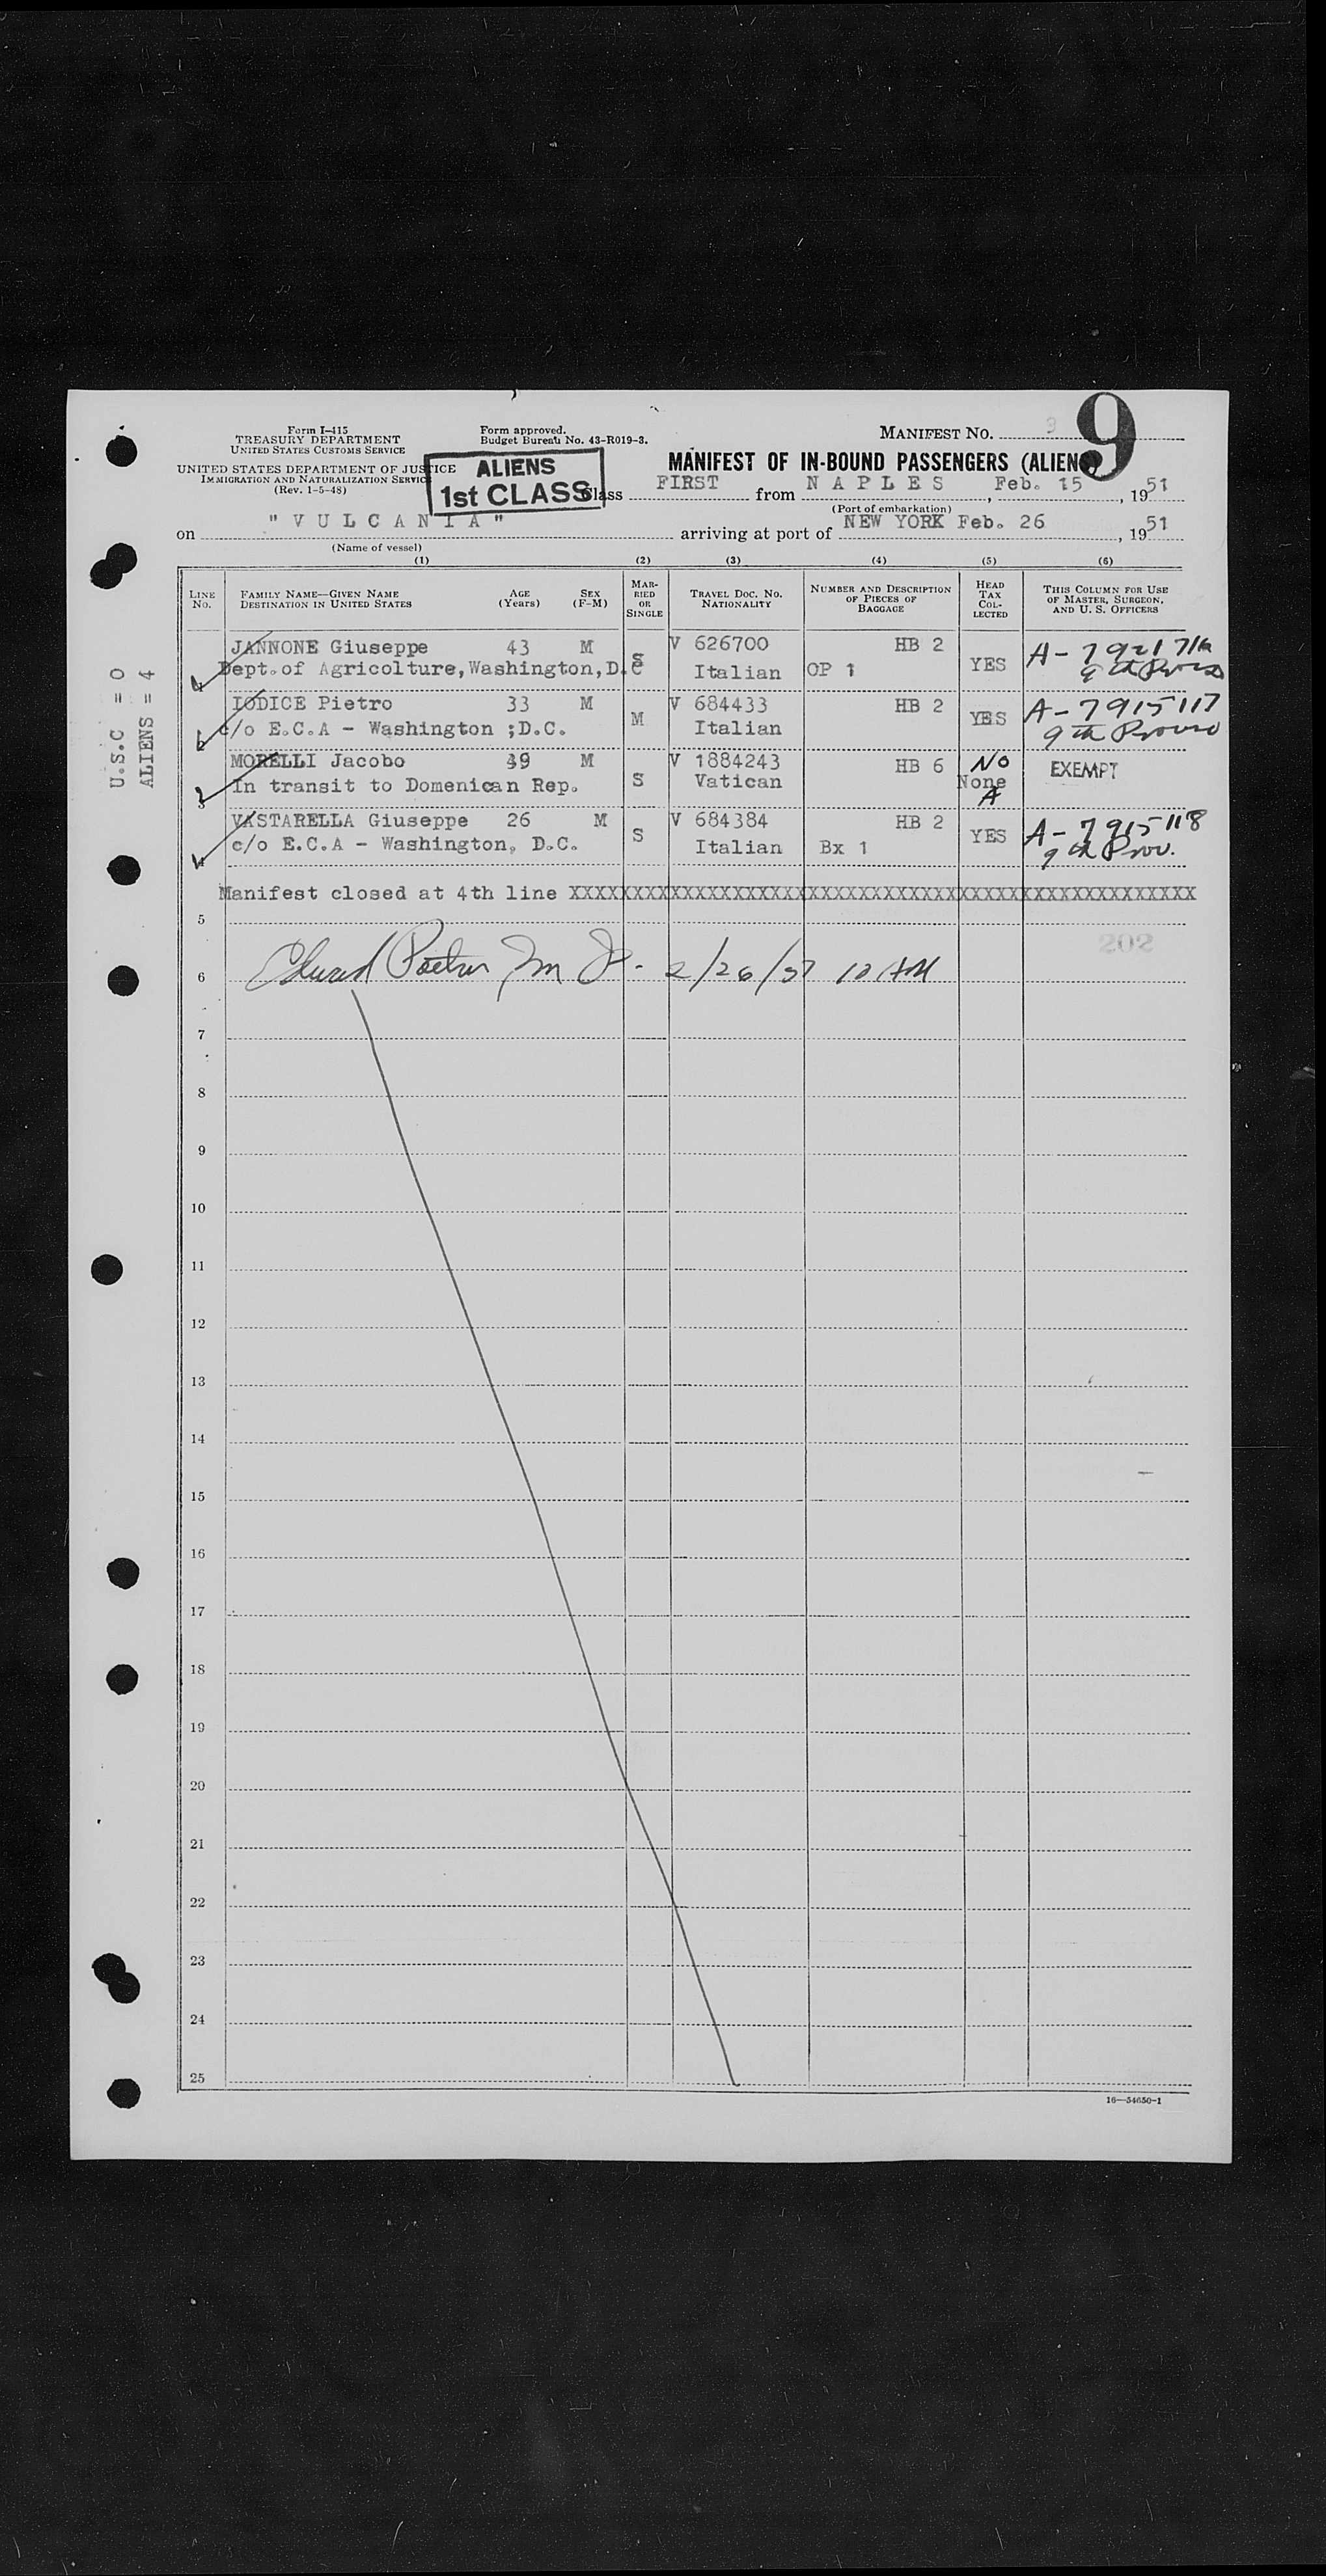 Form I-415
TREASURY DEPARTMENT
UNITED STATES CUSTOMS SERVICE
UNITED STATES DEPARTMENT OF JUSTICE
IMMIGRATION AND NATURALIZATION SERVICE
(Rev. 1-5-48)
Form approved.
Budget Bureau No. 43-R019-3.
ALIENS
1st CLASS
MANIFEST NO. 3
9
MANIFEST OF IN-BOUND PASSENGERS (ALIENS)
Class FIRST from N A P L E S, Feb. 15, 1951
(Port of embarkation)
on " V U L C A N I A " arriving at port of NEW YORK Feb. 26, 1951
(Name of vessel)
(1) (2) (3) (4) (5) (6)
LINE NO. FAMILY NAME—GIVEN NAME DESTINATION IN UNITED STATES AGE (Years) SEX (F-M) MARRIED OR SINGLE TRAVEL DOC. NO. NATIONALITY NUMBER AND DESCRIPTION OF PIECES OF BAGGAGE HEAD TAX COLLECTED THIS COLUMN FOR USE OF MASTER, SURGEON, AND U. S. OFFICERS
U.S.C = 0
ALIENS = 4
JANNONE Giuseppe 43 M S V 626700 HB 2
Dept. of Agricolture, Washington, D.C Italian OP 1 YES
IODICE Pietro 33 M M V 684433 HB 2 YES A-7915117
c/o E.C.A - Washington ;D.C. Italian 9th Proviso
MORELLI Jacobo 39 M S V 1884243 HB 6 NO EXEMPT
3 In transit to Domenican Rep. Vatican None
A
VASTARELLA Giuseppe 26 M S V 684384 HB 2 YES A-7915118
4 c/o E.C.A - Washington, D.C. Italian Bx 1 9th Prov.
Manifest closed at 4th line XXXXXXXXXXXXXXXXXXXXXXXXXXXXXXXXXXXXXXXXXXXXXXXXXXXXXXXXX
5
202
6 2/26/51 10 AM
7
8
9
10
11
12
13
14
15
16
17
18
19
20
21
22
23
24
25
16—54650-1